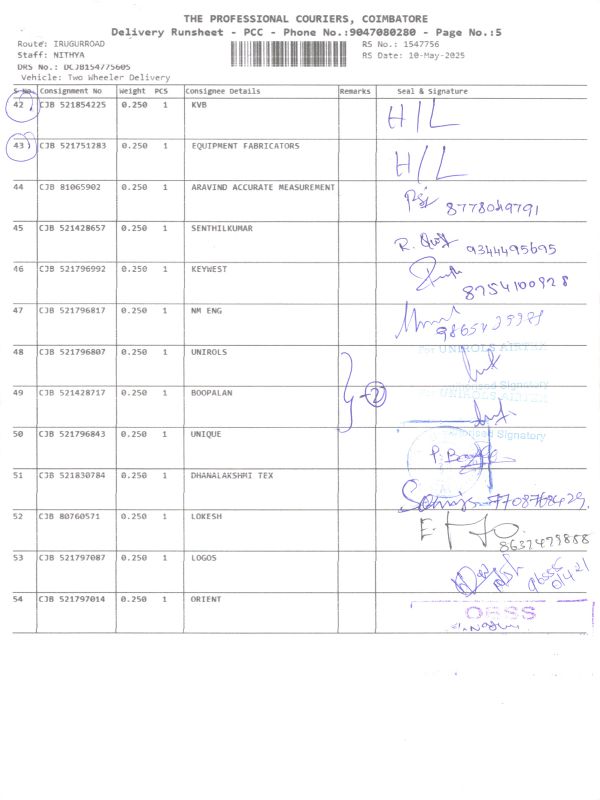 THE PROFESSIONAL COURIERS, COIMBATORE
Delivery Runsheet - PCC - Phone No.:9047080280 - Page No.:5
Route: IRUGURROAD RS No.: 1547756
Staff: NITHYA RS Date: 10-May-2025
DRS No.: DCJB154775605
Vehicle: Two Wheeler Delivery
S No. Consignment No Weight PCS Consignee Details Remarks Seal & Signature
42 CJB 521854225 0.250 1 KVB H/L
43 CJB 521751283 0.250 1 EQUIPMENT FABRICATORS H/L
44 CJB 81065902 0.250 1 ARAVIND ACCURATE MEASUREMENT
45 CJB 521428657 0.250 1 SENTHILKUMAR 9344495695
46 CJB 521796992 0.250 1 KEYWEST 8754100928
47 CJB 521796817 0.250 1 NM ENG
48 CJB 521796807 0.250 1 UNIROLS For UNIROLS
49 CJB 521428717 0.250 1 BOOPALAN 2 Signatory
50 CJB 521796843 0.250 1 UNIQUE Signatory
51 CJB 521830784 0.250 1 DHANALAKSHMI TEX 7708768429
52 CJB 80760571 0.250 1 LOKESH 8637479858
53 CJB 521797087 0.250 1 LOGOS
54 CJB 521797014 0.250 1 ORIENT